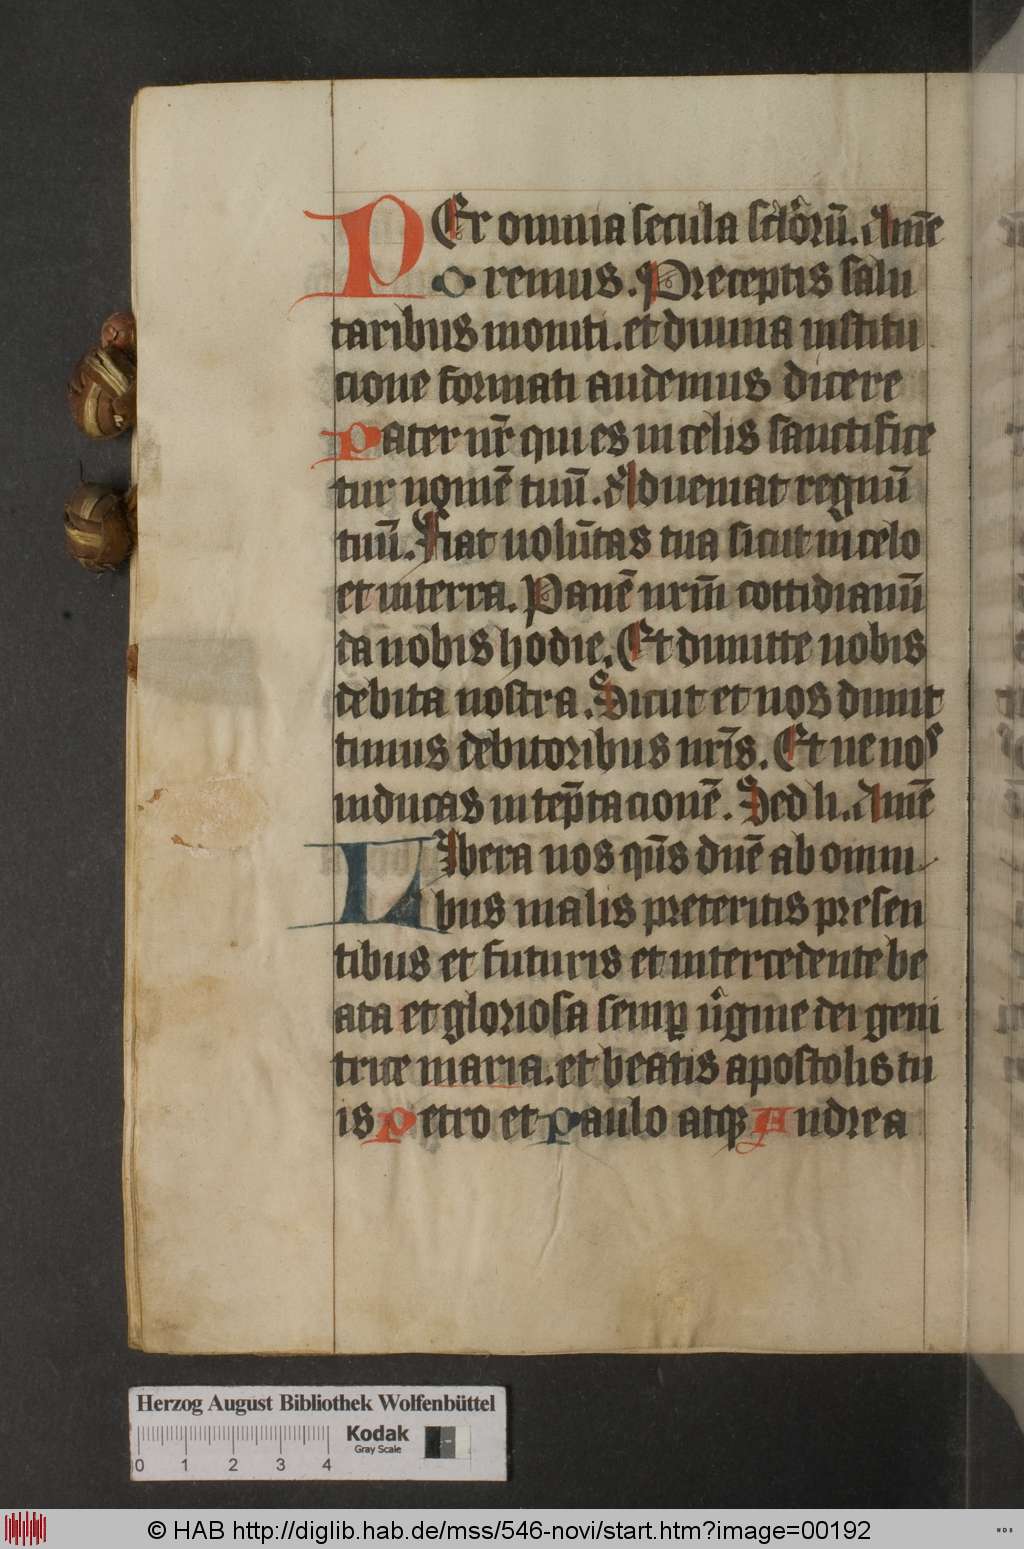 PEr omnia secula sclõrũ. Amẽ
Oremus. Preceptis salu
taribus moniti. et diuina institu
cione formati audemus dicere
Pater nr̃ qui es in celis sanctifice
tur nomẽ tuũ. Adueniat regnũ
tuũ. Fiat volũtas tua sicut in celo
et in terra. Panẽ nrm̃ cottidianũ
da nobis hodie. Et dimitte nobis
debita nostra. Sicut et nos dimit
timus debitoribus nrĩs. Et ne nos
inducas in tep̃tacionẽ. Sed li. Amẽ
LIbera nos qũs dnẽ ab omni
bus malis preteritis presen
tibus et futuris et intercedente be
ata et gloriosa semꝑ vͥgine dei geni
trice maria. et beatis apostolis tu
is Petro et Paulo atqꝫ Andrea
Herzog August Bibliothek Wolfenbüttel
Kodak
Gray Scale
0 1 2 3 4
© HAB http://diglib.hab.de/mss/546-novi/start.htm?image=00192